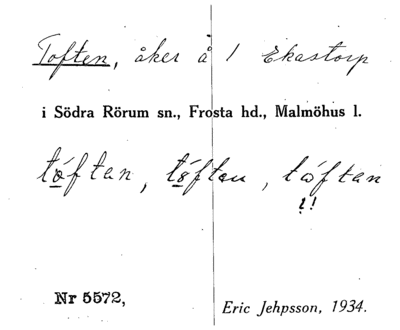 Toften, åker å 1 Ekastorp
i Södra Rörum sn., Frosta hd., Malmöhus l.
tóftan, tóftan, táftan
!!
Nr 5572,
Eric Jehpsson, 1934.